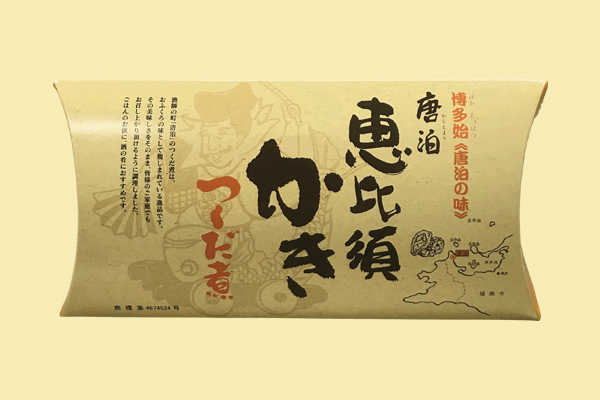 博多始《唐泊の味》
唐泊
恵比須
かき
つくだ煮
漁師の町「唐泊」のつくだ煮は、
おふくろの味として親しまれている逸品です。
その美味しさをそのまま、皆様のご家庭でも
お召し上がり頂けるように調理しました。
ごはんのお供に、酒の肴におすすめです。
商標 第4674524号
福岡市